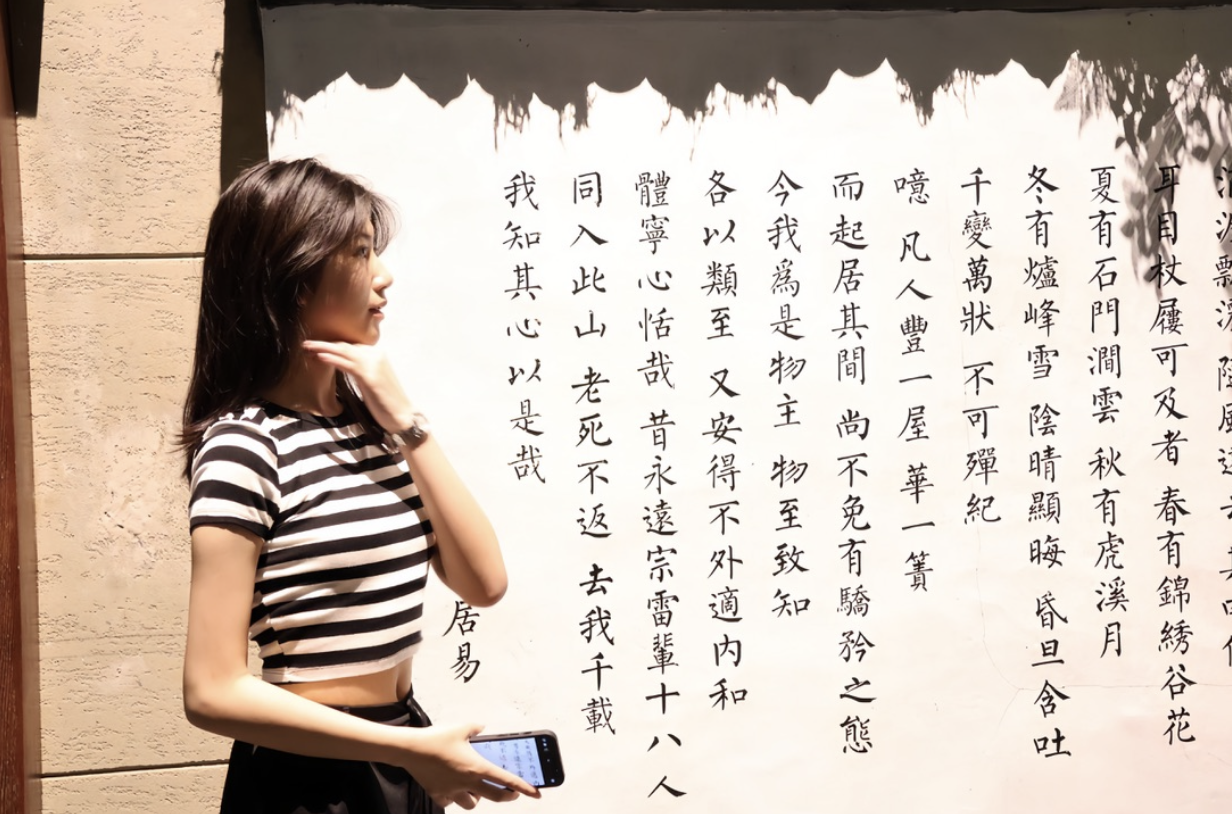 耳目杖屨可及者 春有錦綉谷花
夏有石門澗雲 秋有虎溪月
冬有爐峰雪 陰晴顯晦 昏旦含吐
千變萬狀 不可殫紀
噫 凡人豐一屋 華一簀
而起居其間 尚不免有驕矜之態
今我爲是物主 物至致知
各以類至 又安得不外適内和
體寧心恬哉 昔永遠宗雷輩十八人
同入此山 老死不返 去我千載
我知其心以是哉
居易